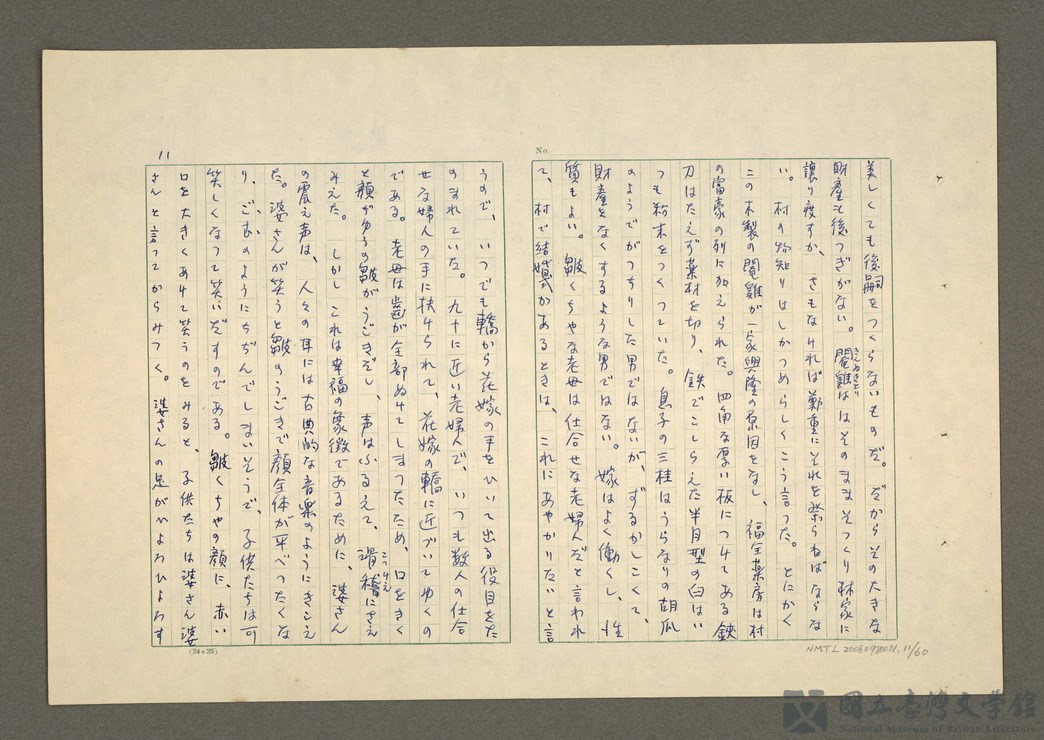 No.
美しくても後嗣をつくらないものだ。だからその大きな
財産も後つぎがない。閹雞ははそのままそつくり林家に
譲り渡すか、さもなければ鄭重にそれを祭らねばならな
い。村の物知りはしかつめらしくこう言つた。とにかく
この木製の閹雞が一家興隆の原因をなし、福全薬房は村
の富豪の列に加えられた。四角な厚い板につけてある鋏
刀はたえず薬材を切り、鉄でこしらえた半月型の臼はい
つも粉末をつくつていた。息子の三桂はうらなりの胡瓜
のようでがつちりした男ではないが、ずるかしこくて、
財産をなくするような男ではない。嫁はよく働くし、性
質もよい。皺くちやな老母は仕合せな老婦人だと言われ
て、村で結婚式があるときは、これにあやかりたいと言
11
うので、いつでも轎から花嫁の手をひいて出る役目をた
のまれていた。九十に近い老婦人で、いつも数人の仕合
せな婦人の手に扶けられて、花嫁の轎に近づいてゆくの
である。老母は歯が全部ぬけてしまつたため、口をきく
と顔ぢゆうの皺がうごきだし、声はふるえて、滑稽にさえ
こっけえ
みえた。しかしこれは幸福の象徴であるために、婆さん
の震え声は、人々の耳には古典的な音楽のようにきこえ
た。婆さんが笑うと皺のうごきで顔全体が平べつたくな
り、ごむのようにちぢんでしまいそうで、子供たちは可
笑しくなつて笑いだすのである。皺くちやの顔に、赤い
口を大きくあけて笑うのをみると、子供たちは婆さん婆
さんと言つてからみつく。婆さんの足がひよろひよろす
(24×25)
NMTL 20060980021, 11/60
國立臺灣文學館
National Museum of Taiwan Literature